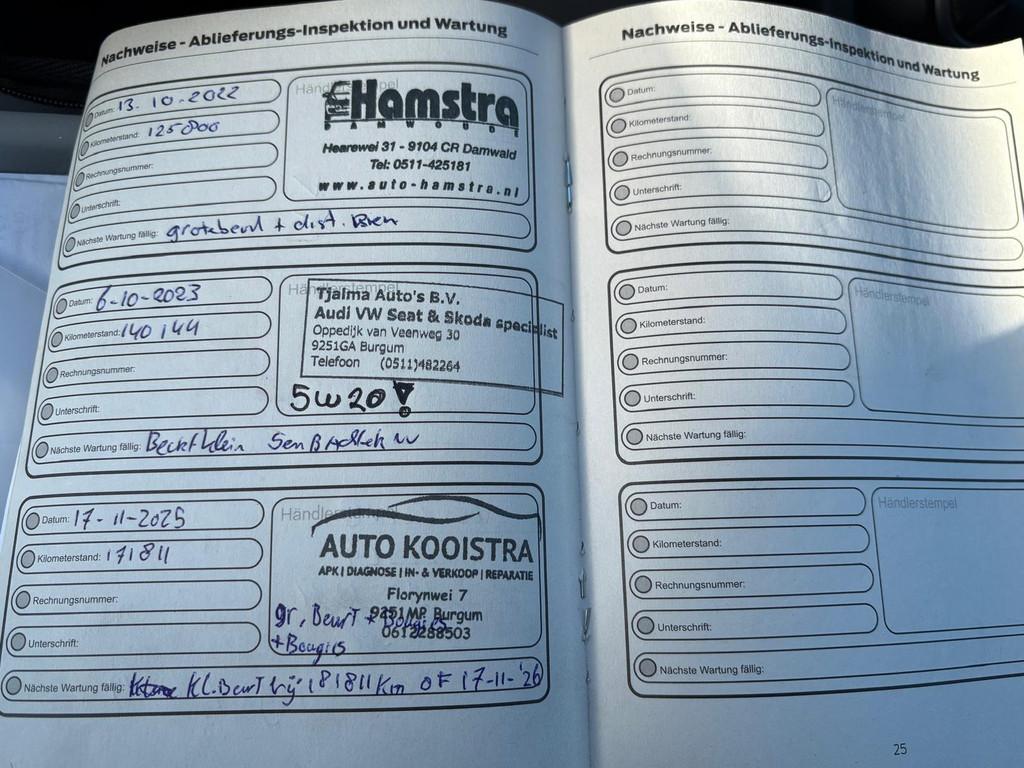 Nachweise - Ablieferungs-Inspektion und Wartung
Datum: 13.10-2022
Kilometerstand: 125000
Rechnungsnummer:
Unterschrift:
Nächste Wartung fällig: grotebeurt + dist. Riem
Hamstra
DAMWOUDE
Hearewei 31 - 9104 CR Damwald
Tel: 0511-425181
www.auto-hamstra.nl
Datum: 6-10-2023
Kilometerstand: 140144
Rechnungsnummer:
Unterschrift:
Nächste Wartung fällig:
Händlerstempel
Tjalma Auto's B.V.
Audi VW Seat & Skoda specialist
Oppedijk van Veenweg 30
9251GA Burgum
Telefoon (0511)482264
5w20
Datum: 17-11-2025
Kilometerstand: 171811
Rechnungsnummer:
Unterschrift:
Händlerstempel
AUTO KOOISTRA
APK | DIAGNOSE | IN- & VERKOOP | REPARATIE
Florynwei 7
9251MP Burgum
0612288503
gr, Beurt + Bougies
+ Bougies
Nächste Wartung fällig: Kl. Beurt bij 181811 Km OF 17-11-'26
Nachweise - Ablieferungs-Inspektion und Wartung
Datum:
Kilometerstand:
Rechnungsnummer:
Unterschrift:
Nächste Wartung fällig:
Händlerstempel
Datum:
Kilometerstand:
Rechnungsnummer:
Unterschrift:
Nächste Wartung fällig:
Händlerstempel
Datum:
Kilometerstand:
Rechnungsnummer:
Unterschrift:
Nächste Wartung fällig:
Händlerstempel
25